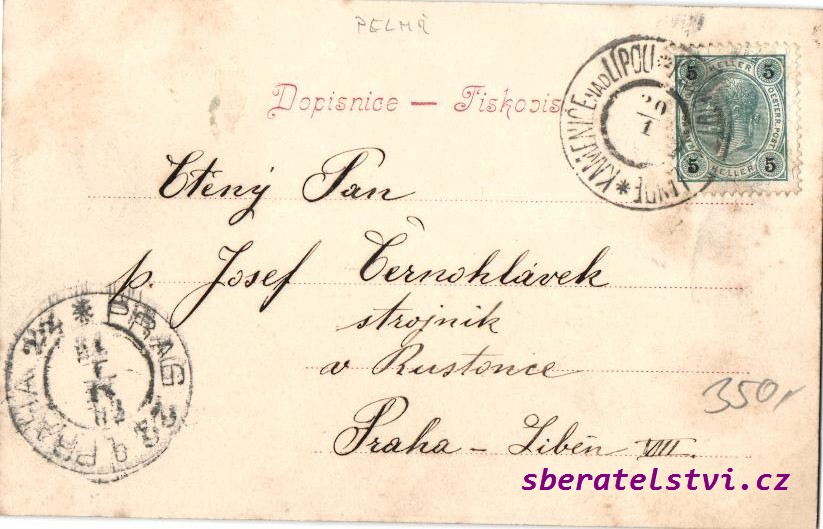 PELMŘ
Dopisnice — Tiskopis
KAMENICE NAD LÍPOU
20
1
5 HELLER 5
OESTERR. POST
5 HELLER 5
Ctěný Pan
p. Josef Černohlávek
strojník
v Rustonce
Praha – Libèn VIII.
PRAG
PRAHA
350,-
sberatelstvi.cz